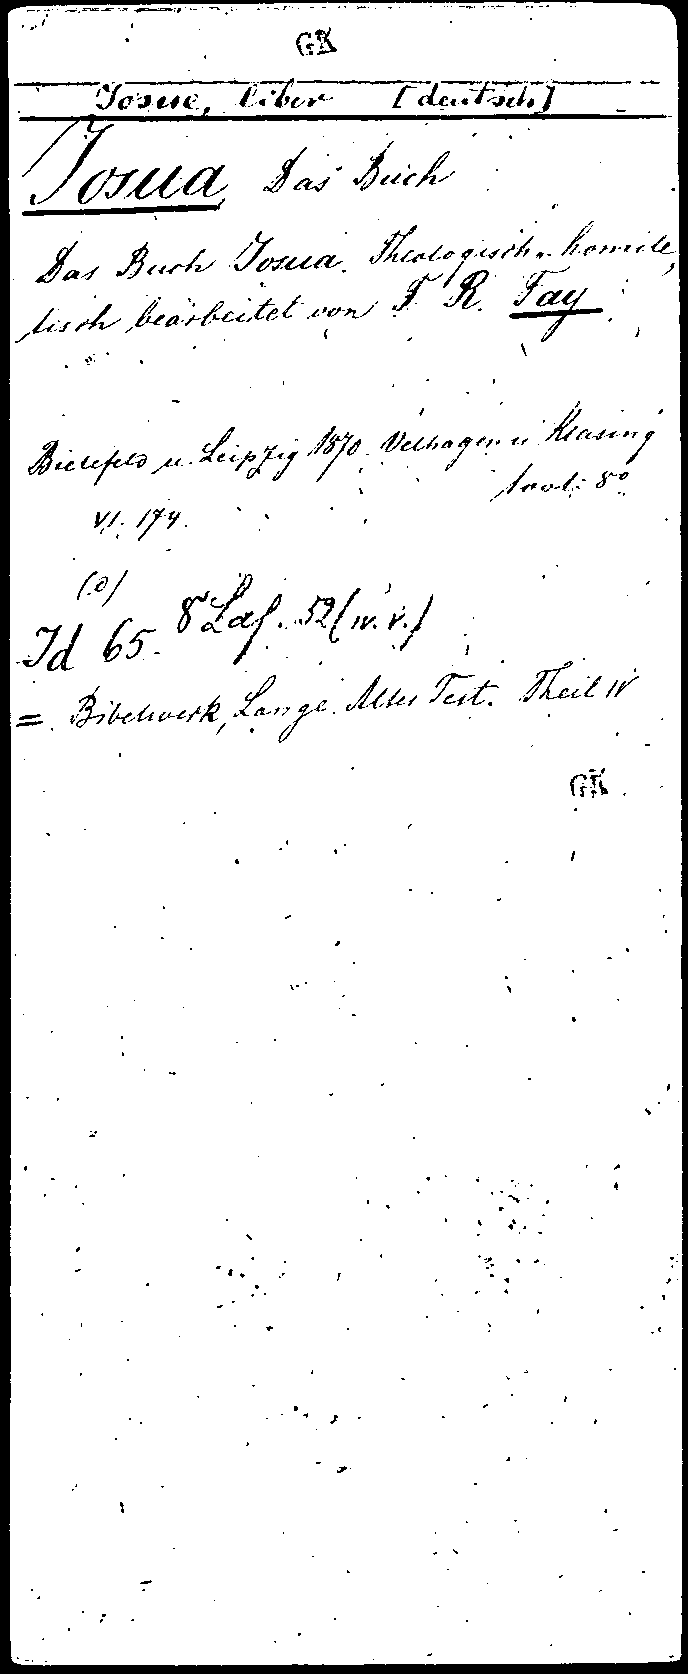 GK
Josue, liber [deutsch]
Josua, Das Buch
Das Buch Josua. Theologisch u. homile,
tisch bearbeitet von F. R. Fay
Bielefeld u. Leipzig 1870. Velhagen u Klasing
1 vol: 8°
VI. 174.
(o)
Id 65. 8° Laf. 52 (IV. V.)
= Bibelwerk, Lange. Altes Test. Theil IV
GK